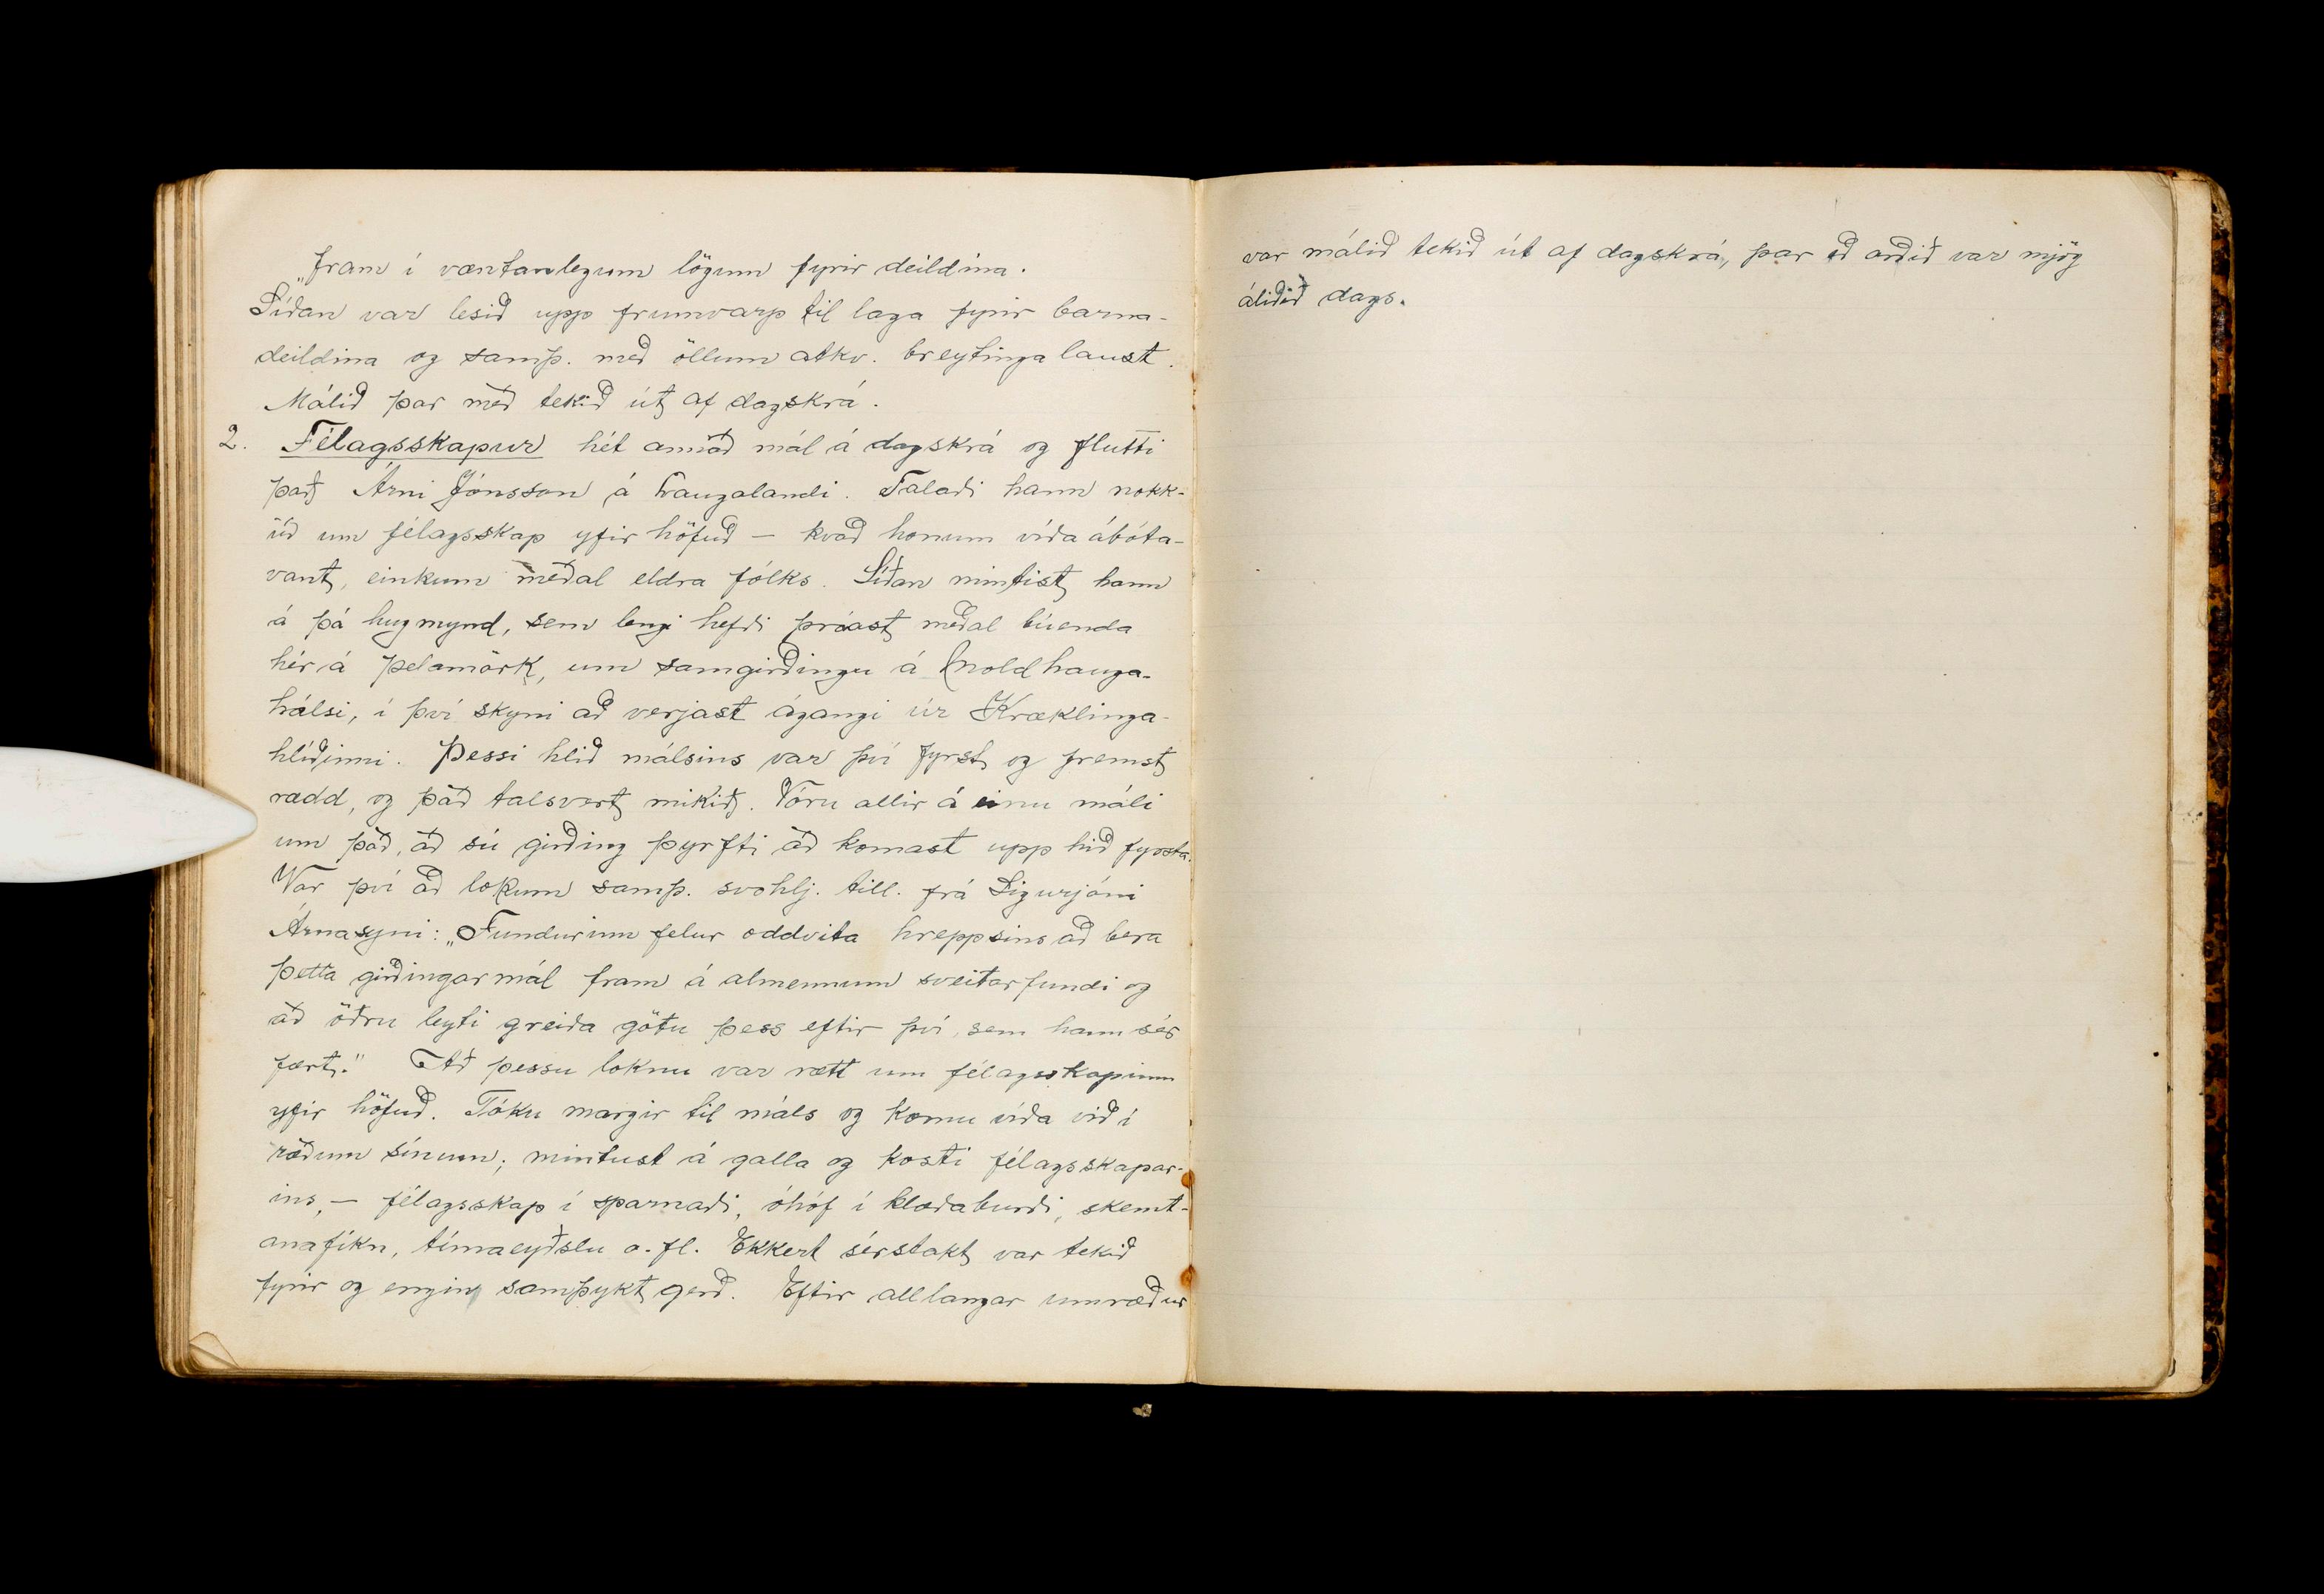 „fram í væntanlegum lögum fyrir deildina.
Síðan var lesið upp frumvarp til laga fyrir barna-
deildina og samþ. með öllum atkv. breytinga laust.
Málið þar með tekið út af dagskrá.
2. Félagsskapur hét annað mál á dagskrá og flutti
það Árni Jónsson á Laugalandi. Talaði hann nokk-
uð um félagsskap yfir höfuð – kvað honum víða ábóta-
vant, einkum meðal eldra fólks. Síðan mintist hann
á þá hugmynd, sem lengi hefði þróast meðal búenda
hér á Þelamörk, um samgirðingu á Moldhauga-
hálsi, í því skyni að verjast ágangi úr Kræklinga-
hlíðinni. Þessi hlið málsins var því fyrst og fremst
rædd, og það talsvert mikið. Vóru allir á einu máli
um það, að sú girðing þyrfti að komast upp hið fyrsta.
Var því að lokum samþ. svohlj. till. frá Sigurjóni
Árnasyni: „Fundurinn felur oddvita hreppsins að bera
þetta girðingarmál fram á almennum sveitarfundi og
að öðru leyti greiða götu þess eftir því, sem hann sér
fært." Að þessu loknu var rætt um félagsskapinn
yfir höfuð. Tóku margir til máls og komu víða við í
ræðum sínum; mintust á galla og kosti félagsskapar-
ins, – félagsskap í sparnaði, óhóf í klæðaburði, skemt-
anafíkn, tímaeyðslu o. fl. Ekkert sérstakt var tekið
fyrir og engin samþykt gerð. Eftir alllangar umræður
var málið tekið út af dagskrá, þar eð orðið var mjög
áliðið dags.